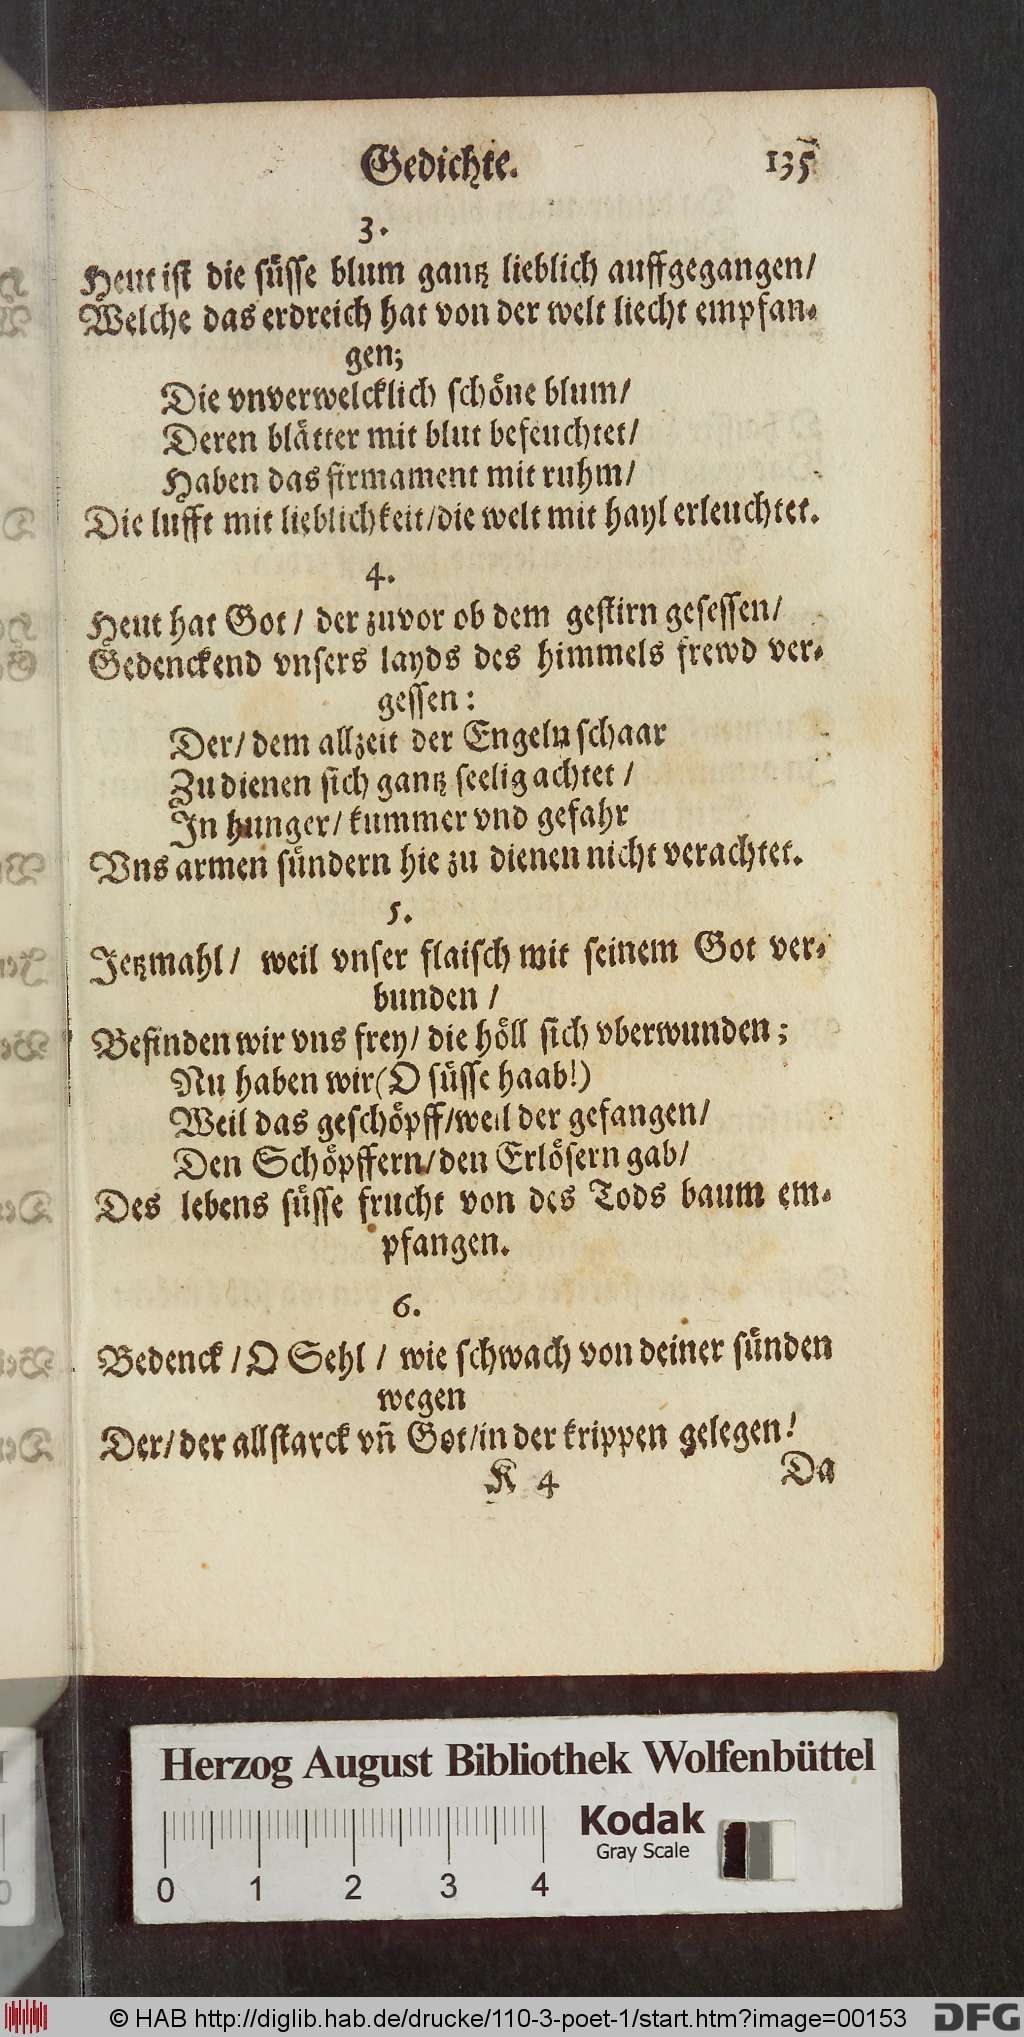 Gedichte. 135
3.
Heut ist die süsse blum gantz lieblich auffgegangen/
Welche das erdreich hat von der welt liecht empfan-
gen;
Die vnverwelcklich schöne blum/
Deren blätter mit blut befeuchtet/
Haben das firmament mit ruhm/
Die lufft mit lieblichkeit/die welt mit hayl erleuchtet.
4.
Heut hat Got/ der zuvor ob dem gestirn gesessen/
Gedenckend vnsers layds des himmels frewd ver-
gessen:
Der/ dem allzeit der Engeln schaar
Zu dienen sich gantz seelig achtet/
In hunger/ kummer vnd gefahr
Vns armen sündern hie zu dienen nicht verachtet.
5.
Jetzmahl/ weil vnser flaisch mit seinem Got ver-
bunden/
Befinden wir vns frey/ die höll sich vberwunden;
Nu haben wir (O süsse haab!)
Weil das geschöpff/weil der gefangen/
Den Schöpffern/den Erlösern gab/
Des lebens süsse frucht von des Tods baum em-
pfangen.
6.
Bedenck/O Sehl/ wie schwach von deiner sünden
wegen
Der/ der allstarck vñ Got/in der krippen gelegen!
K 4 Da
Herzog August Bibliothek Wolfenbüttel
Kodak
Gray Scale
0 1 2 3 4
© HAB http://diglib.hab.de/drucke/110-3-poet-1/start.htm?image=00153 DFG